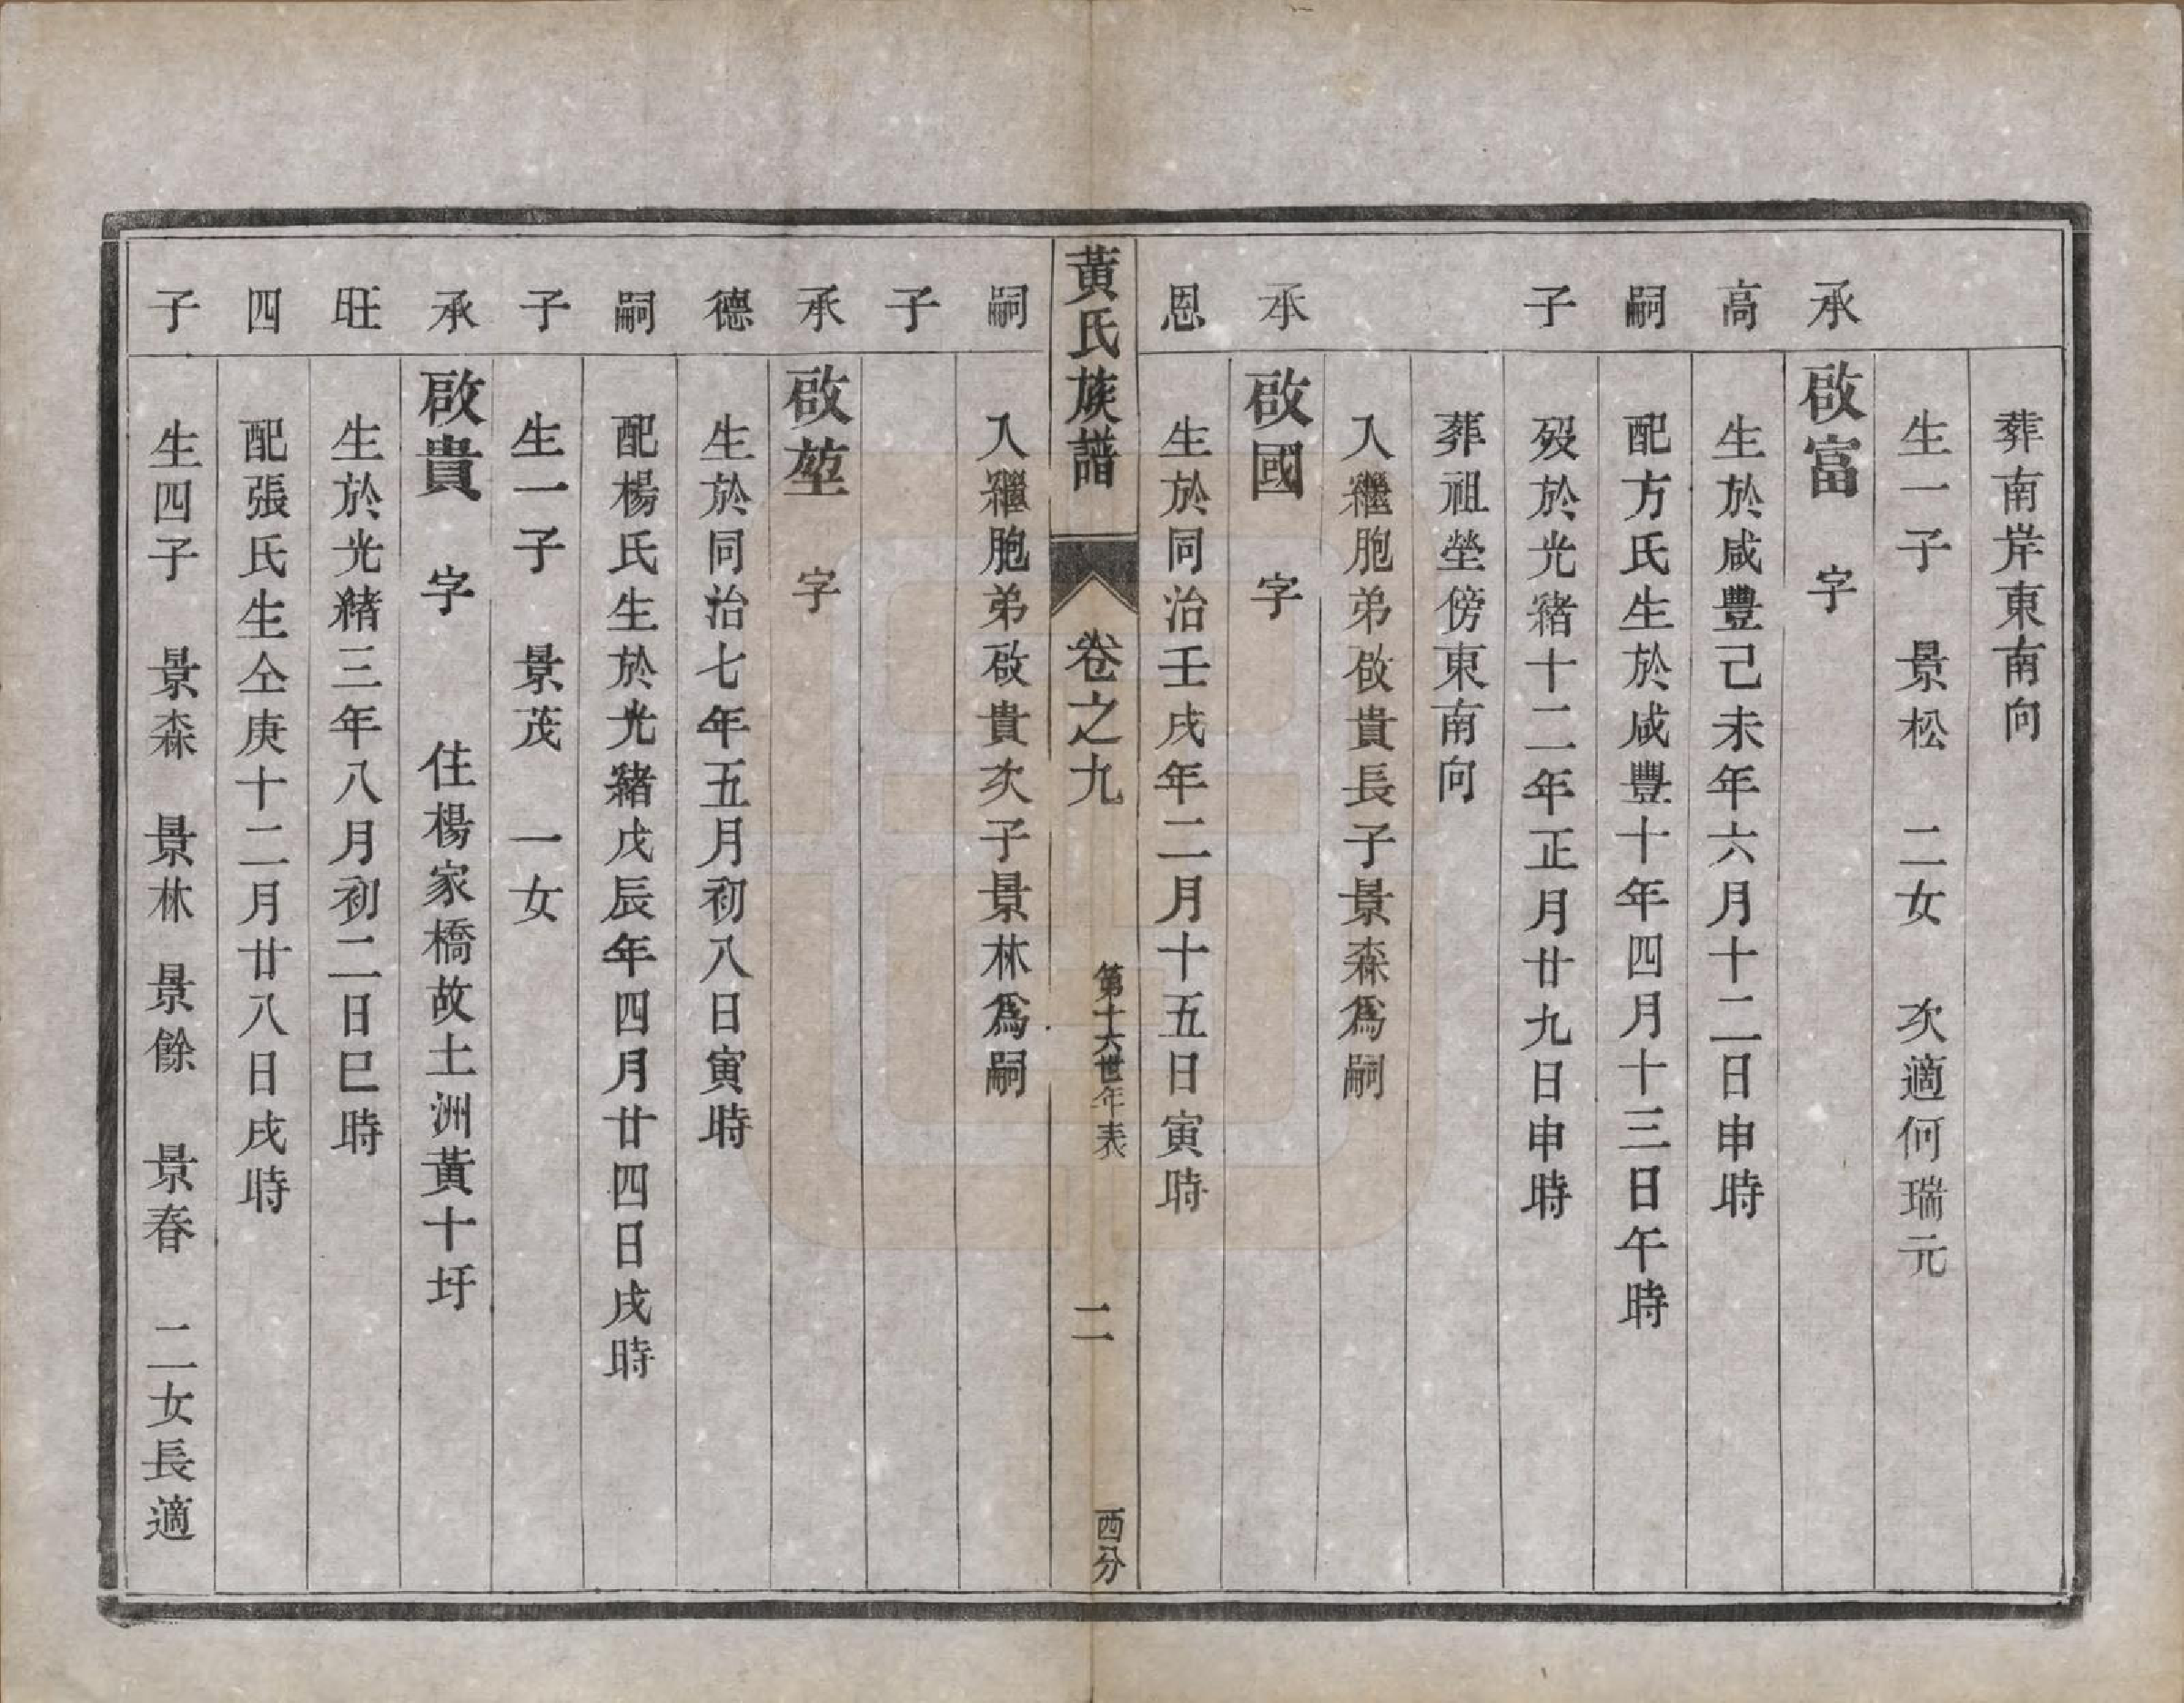 葬南岸東南向
生一子　景松　二女　次適何瑞元
承　啟富　字
高　生於咸豐己未年六月十二日申時
嗣　配方氏生於咸豐十年四月十三日午時
子　殁於光緒十二年正月廿九日申時
葬祖塋傍東南向
入繼胞弟啟貴長子景森爲嗣
承　啟國　字
恩　生於同治壬戌年二月十五日寅時
黃氏族譜　卷之九　第十六世年表　二　西分
嗣　入繼胞弟啟貴次子景林爲嗣
子
承　啟堃　字
德　生於同治七年五月初八日寅時
嗣　配楊氏生於光緒戊辰年四月廿四日戌時
子　生一子　景茂　一女
承　啟貴　字　住楊家橋故土洲黃十圩
旺　生於光緒三年八月初二日巳時
四　配張氏生仝庚十二月廿八日戌時
子　生四子　景森　景林　景餘　景春　二女長適